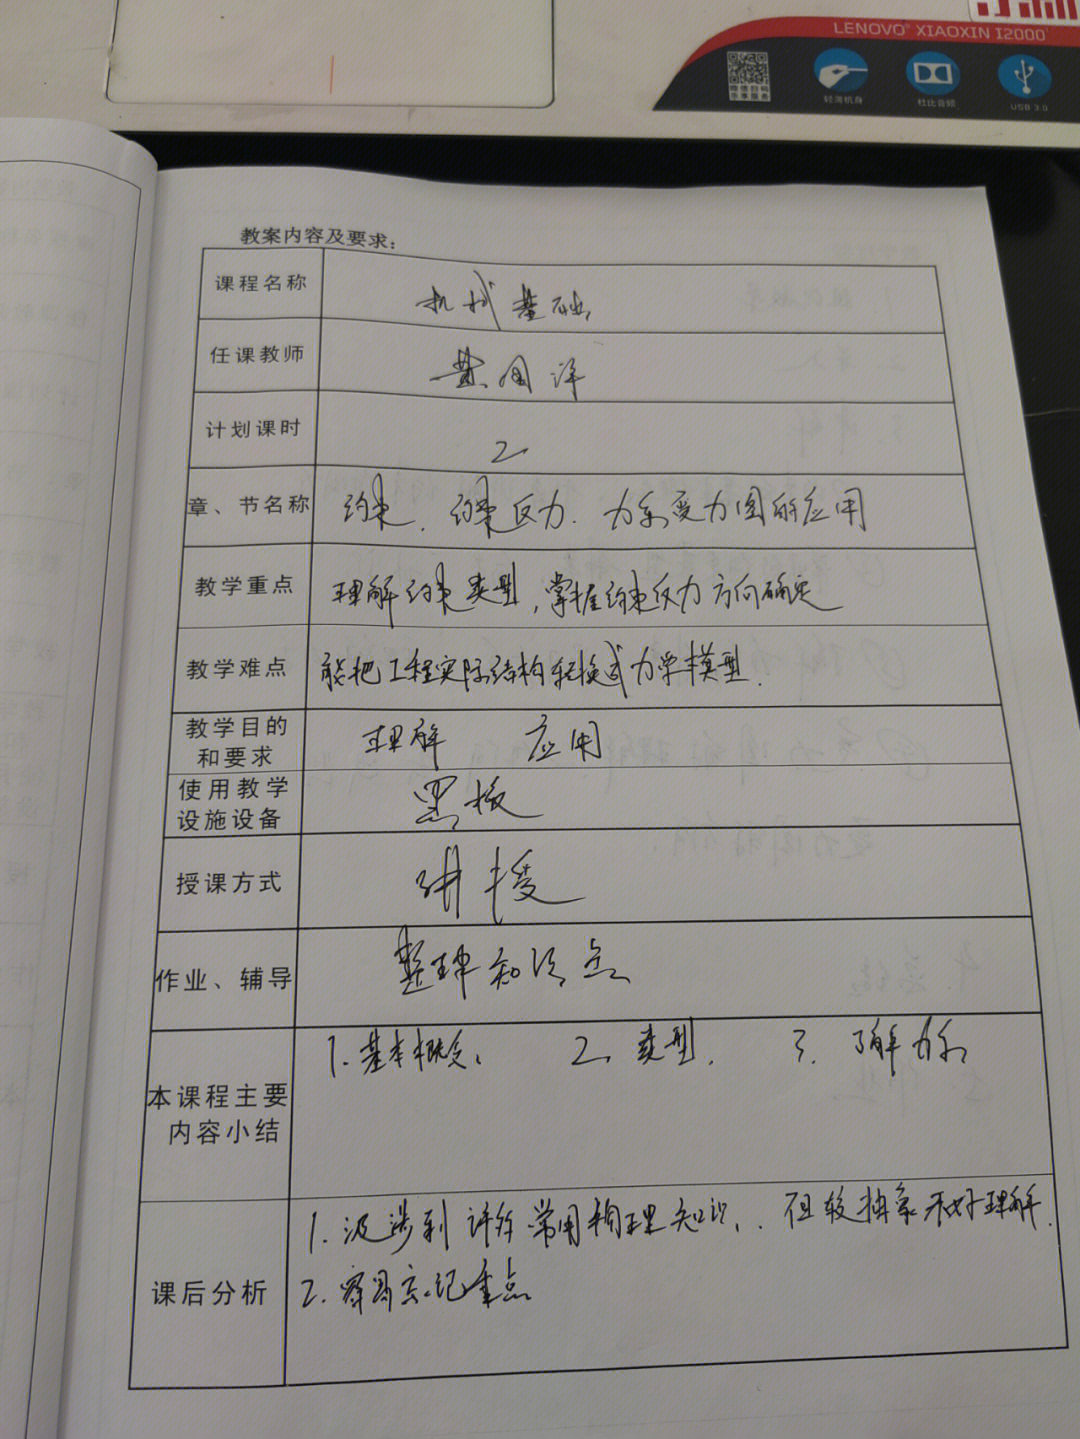 LENOVO® XIAOXIN I2000
轻薄机身 杜比音频 USB 3.0
教案内容及要求:
课程名称 机械基础
任课教师 黄国洋
计划课时 2
章、节名称 约束、约束反力、力系受力图的应用
教学重点 理解约束类型,掌握约束反力方向确定
教学难点 能把工程实际结构转换成力学模型.
教学目的
和要求 理解 应用
使用教学
设施设备 黑板
授课方式 讲授
作业、辅导 整理知识点
1.基本概念; 2.类型. 3.了解力系
本课程主要
内容小结
1.没涉到许多常用物理知识、但较抽象不好理解.
课后分析 2.容易忘记重点